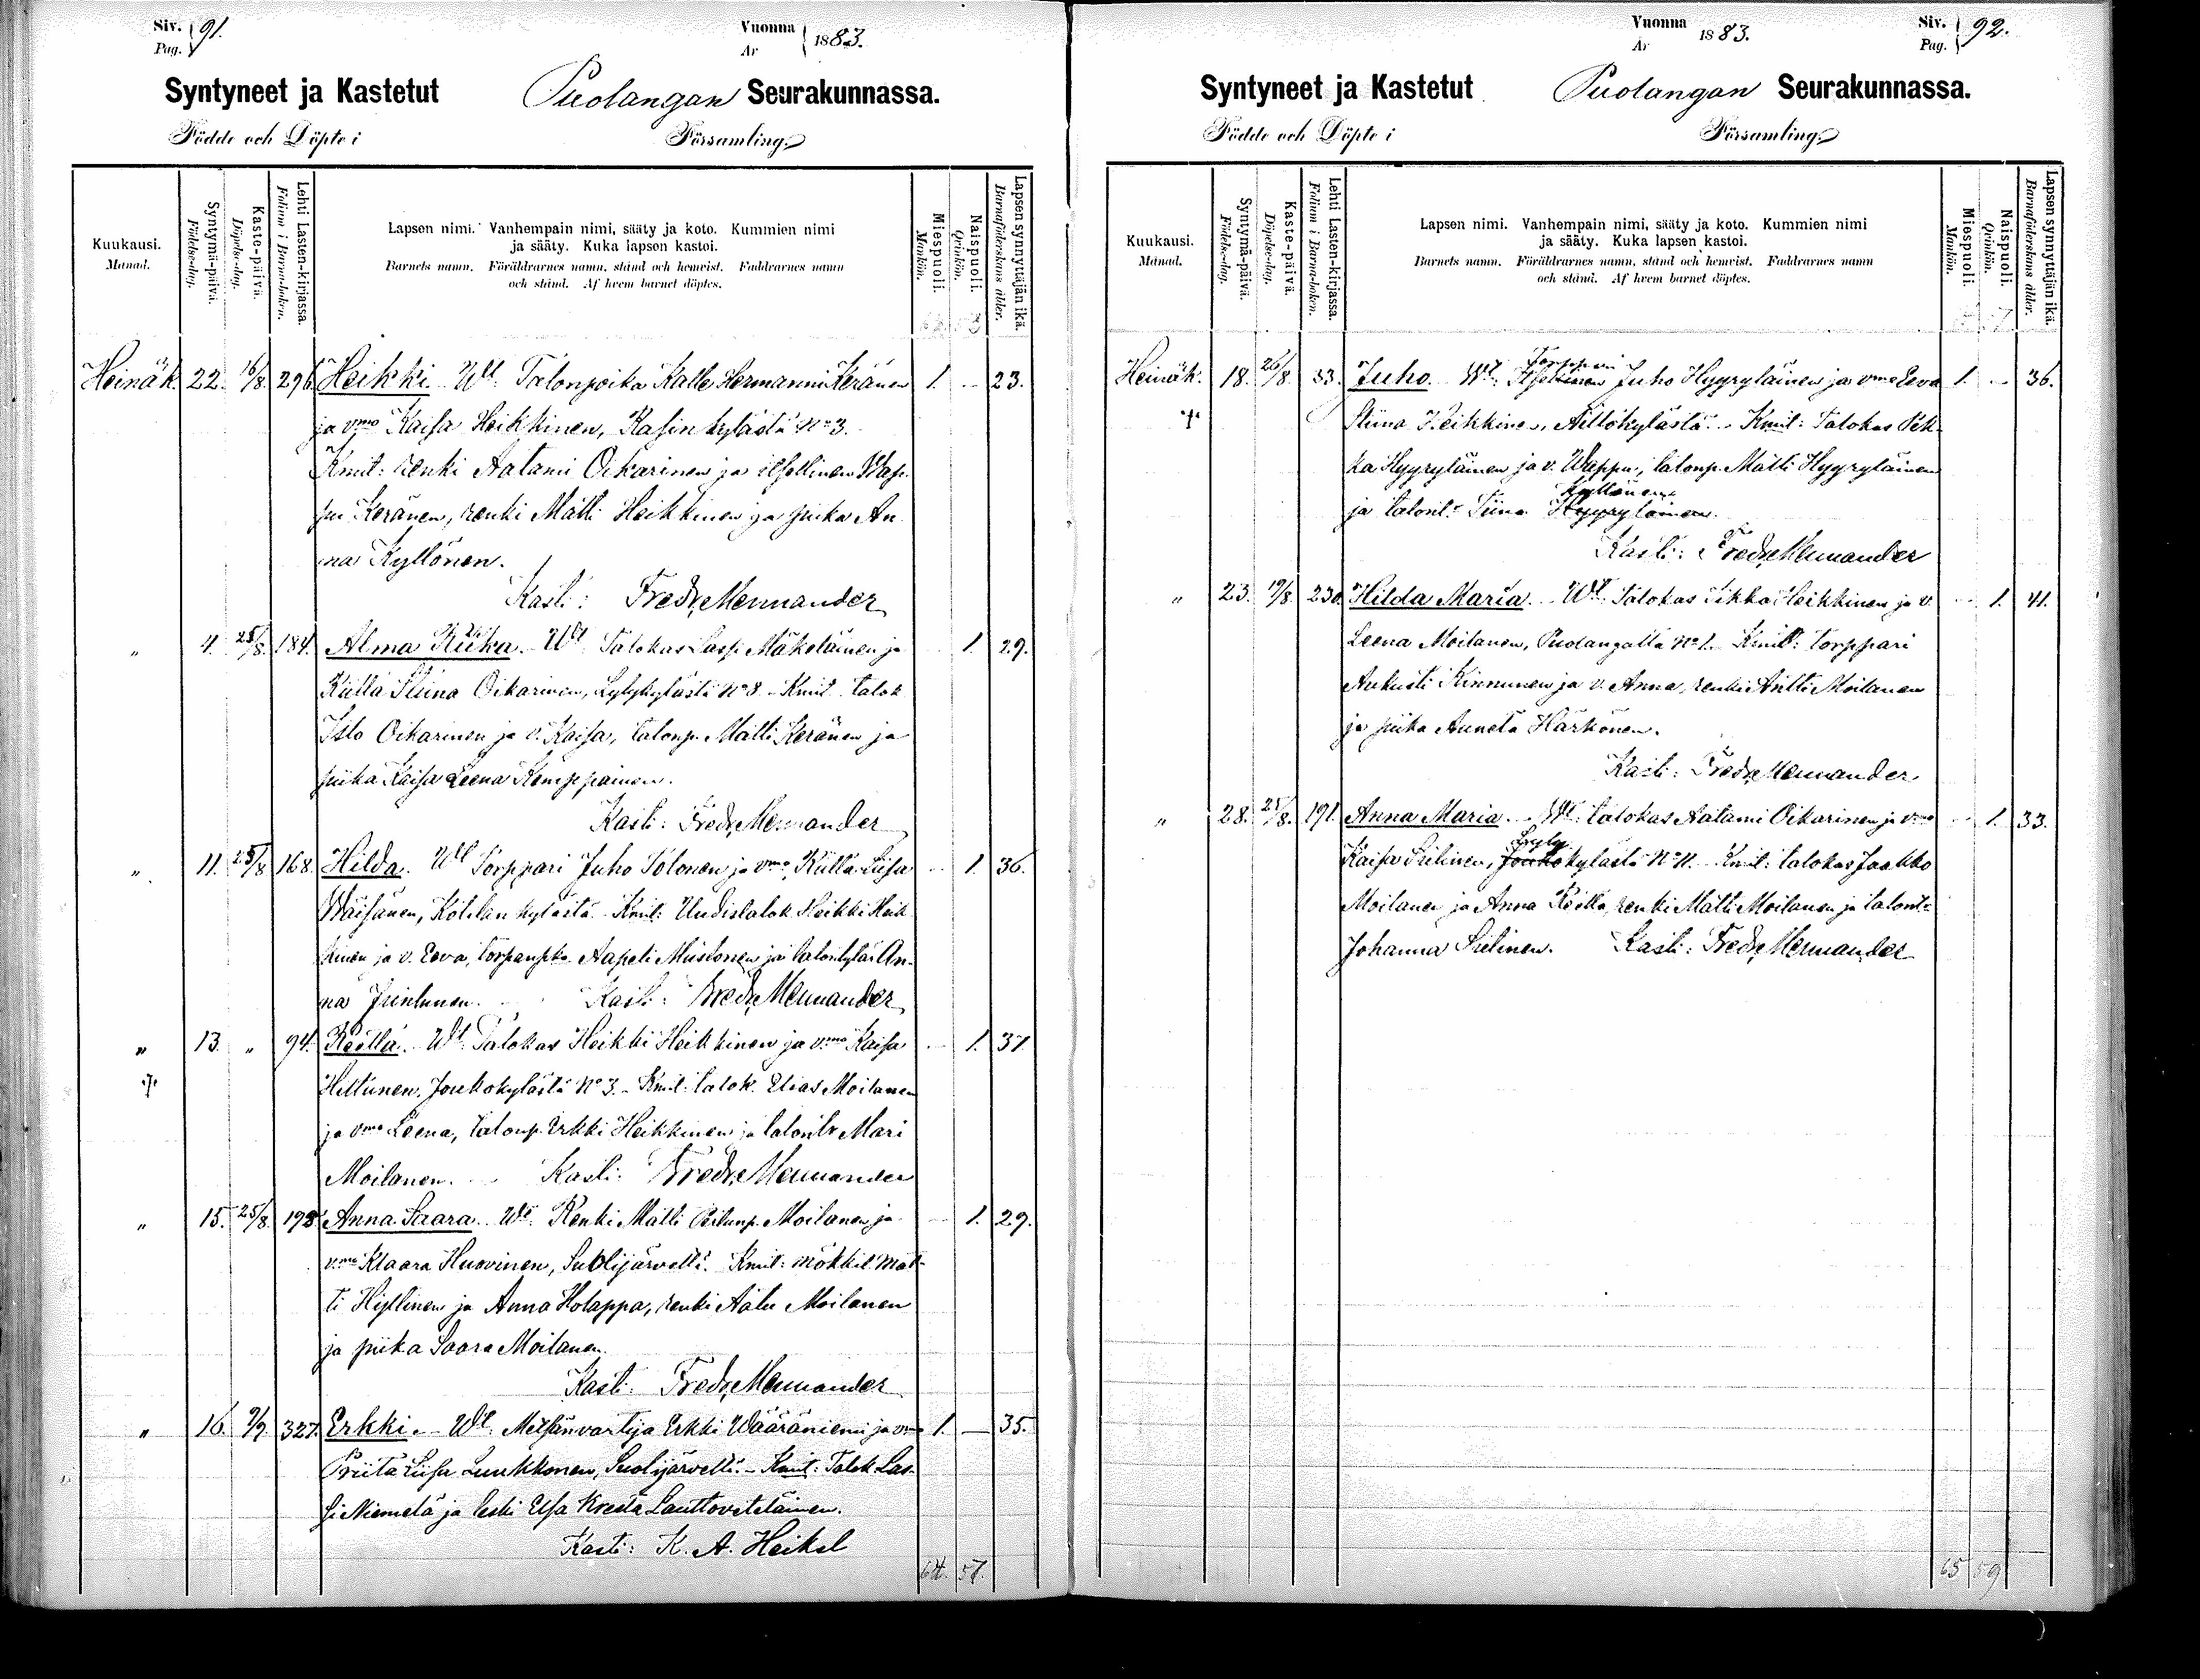 Siv. 91.
Pag.
Vuonna 1883.
År
Syntyneet ja Kastetut Puolangan Seurakunnassa.
Födde och Döpte i Församling.
Kuukausi.
Månad.
Syntymä-päivä.
Födelse-dag.
Kaste-päivä.
Döpelse-dag.
Lehti Lasten-kirjassa.
Folium i Barnaboken.
Lapsen nimi. Vanhempain nimi, sääty ja koto. Kummien nimi
ja sääty. Kuka lapsen kastoi.
Barnets namn. Föräldrarnes namn, stånd och hemvist. Faddrarnes namn
och stånd. Af hvem barnet döptes.
Miespuoli.
Mankön.
Naispuoli.
Qvinkön.
Lapsen synnyttäjän ikä.
Barnaföderskans ålder.
Heinäk. 22. 16/8. 296. Heikki Wt Talonpoika Kalle Hermanni Keränen 1. 23.
ja vmo Kaisa Heikkinen, Kasin kylästä No 3.
Kmit: renki Aatami Oikarinen ja itsellinen Wap-
pu Keränen, renki Matti Heikkinen ja piika An
na Kyllönen.
Kasti: Fredr. Mennander
" 4. 25/8. 184. Alma Riika. Wt Talokas Lassi Mäkeläinen ja 1. 29.
Kulla Stiina Oikarinen, Lylykylästä No 8. Kmit talok
Isto Oikarinen ja v. Kaisa, talonp. Matti Keränen ja
piika Kaisa Leena Kemppainen.
Kasti: Fredr. Mennander
" 11. 25/8 168. Hilda. Wt Torppari Juho Tolonen ja vmo Kulla Liisa 1. 36.
Wäisänen, Kotilan kylästä. Kmit: Uudistalok Heikki Heik
kinen ja v. Eeva, torpanpka Aapeli Mustonen ja talontytär An-
na Juntunen. Kasti: Fredr. Mennander
" 13. " 94. Reetta. Wt. Talokas Heikki Heikkinen ja vmo Kaisa 1. 37.
Hiltunen, Joukokylästä No 3. Kmit: talok. Elias Moilanen
ja vmo Leena, talonp. Erkki Heikkinen ja talontr Mari
Moilanen. Kasti: Fredr. Mennander
" 15. 25/8. 193 Anna Saara. Wt. Renki Matti Moilanen ja 1. 29.
vmo Klaara Huovinen, Suolijärveltä. Kmit: mökkil. Mat-
ti Hyllinen ja Anna Holappa, renki Aatu Moilanen
ja piika Saara Moilanen.
Kasti: Fredr. Mennander
" 16. 9/9. 327. Erkki. Wt. Metsänvartija Erkki Wääräniemi ja vmo 1. — 35.
Priita Liisa Luukkonen, Suolijärveltä. Kmit: Talok Las-
si Niemelä ja leski Elsa Kreeta Lauttoveteläinen.
Kasti: K. A. Heikel
64. 57.
Vuonna 1883.
År
Siv. 92.
Pag.
Syntyneet ja Kastetut Puolangan Seurakunnassa.
Födde och Döpte i Församling.
Kuukausi.
Månad.
Syntymä-päivä.
Födelse-dag.
Kaste-päivä.
Döpelse-dag.
Lehti Lasten-kirjassa.
Folium i Barnaboken.
Lapsen nimi. Vanhempain nimi, sääty ja koto. Kummien nimi
ja sääty. Kuka lapsen kastoi.
Barnets namn. Föräldrarnes namn, stånd och hemvist. Faddrarnes namn
och stånd. Af hvem barnet döptes.
Miespuoli.
Mankön.
Naispuoli.
Qvinkön.
Lapsen synnyttäjän ikä.
Barnaföderskans ålder.
Torppari
Heinäk. 18. 26/8 33. Juho. Wt: Itsellinen Juho Hyyryläinen ja vmo Eeva 1. 36.
Stiina Heikkinen, Aittokylästä. Kmit: Talokas Pek-
ka Hyyryläinen ja v. Wappu, talonp. Matti Hyyryläinen
Kyllönen
ja talontr Tiina Hyyryläinen.
Kasti: Fredr. Mennander
" 23. 19/8. 230. Hilda Maria. Wt. Talokas Iikka Heikkinen ja v. 1. 41.
Leena Moilanen, Puolangalta No 1. Kmit: torppari
Aukusti Kinnunen ja v. Anna, renki Antti Moilanen
ja piika Anneta Härkönen.
Kasti: Fredr. Mennander
" 28. 25/8. 191. Anna Maria. Wt: talokas Aatami Oikarinen ja vmo 1. 33.
Lyly
Kaisa Sutinen, Joukokylästä No 11. Kmit: talokas Jaakko
Moilanen ja Anna Reetta, renki Matti Moilanen ja talontr
Johanna Sutinen. Kasti: Fredr. Mennander
65 59